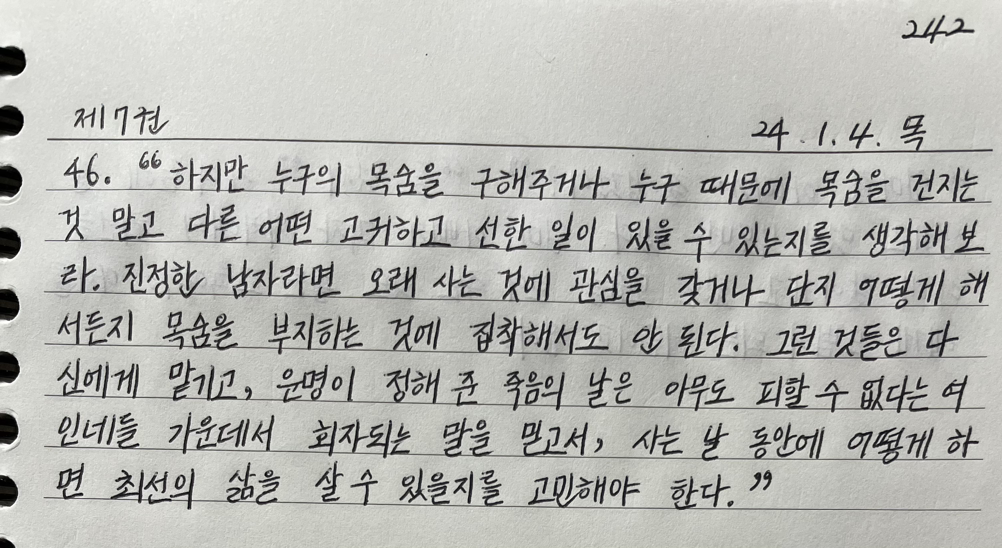 242
제17권
24.1.4. 목
46. “하지만 누구의 목숨을 구해주거나 누구 때문에 목숨을 건지는
것 말고 다른 어떤 고귀하고 선한 일이 있을 수 있는지를 생각해 보
라. 진정한 남자라면 오래 사는 것에 관심을 갖거나 단지 어떻게 해
서든지 목숨을 부지하는 것에 집착해서도 안 된다. 그런 것들은 다
신에게 맡기고, 운명이 정해 준 죽음의 날은 아무도 피할 수 없다는 여
인네들 가운데서 회자되는 말을 믿고서, 사는 날 동안에 어떻게 하
면 최선의 삶을 살 수 있을지를 고민해야 한다.”